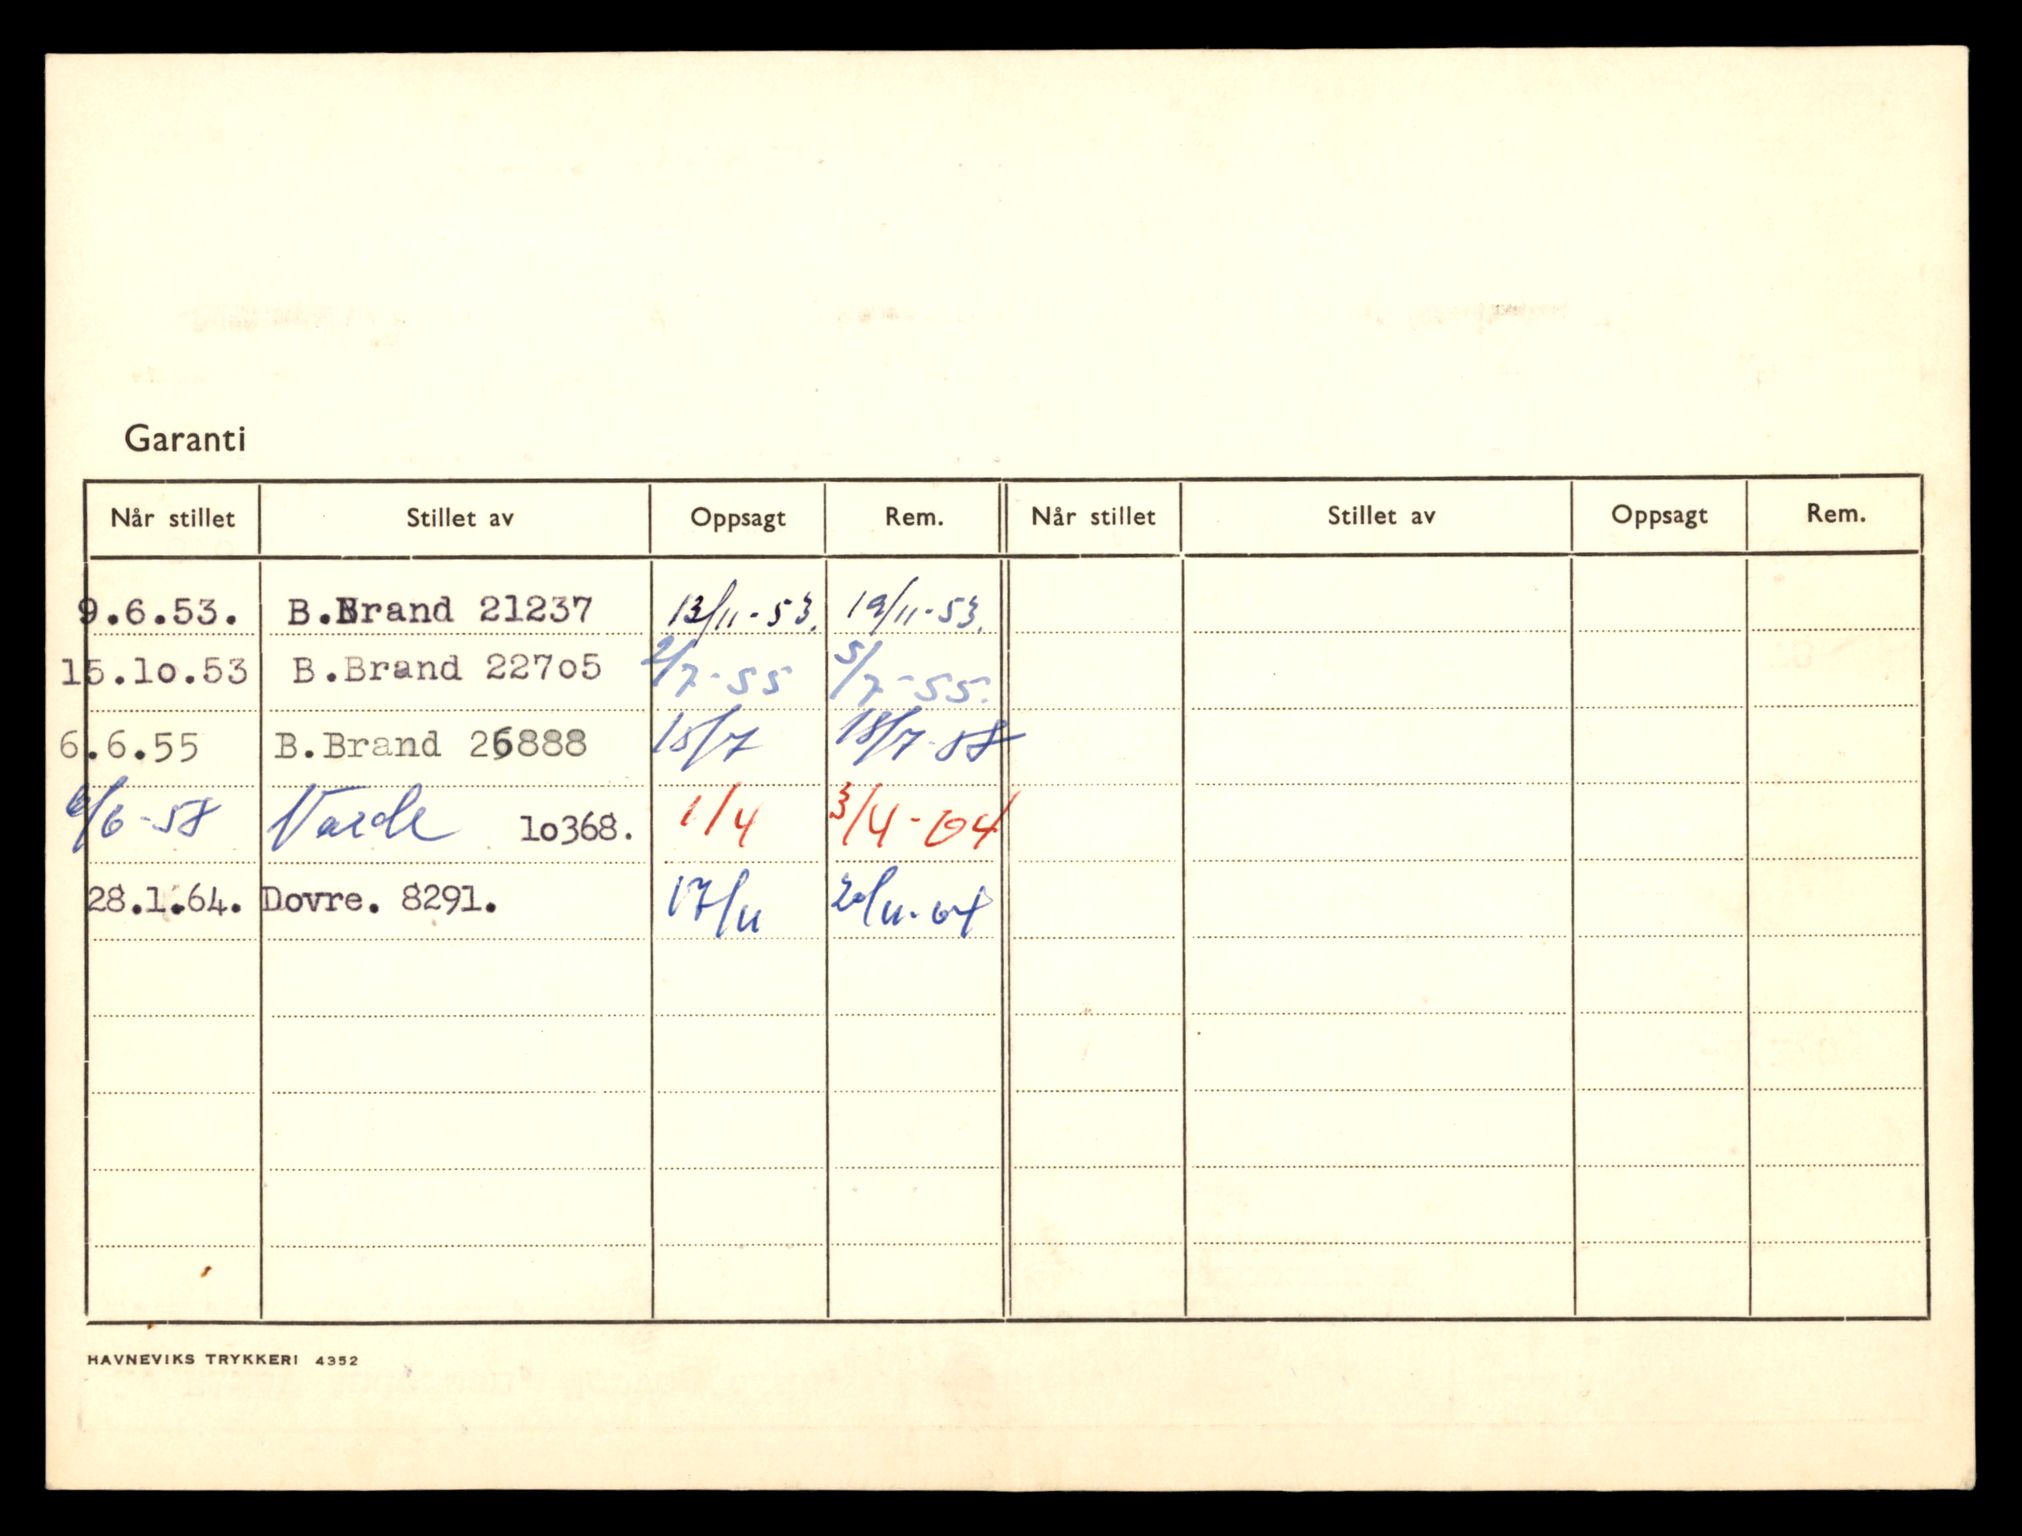 Garanti
Når stillet Stillet av Oppsagt Rem. Når stillet Stillet av Oppsagt Rem.
9.6.53. B.Brand 21237 13/11-53. 19/11-53.
15.10.53 B.Brand 22705 2/7-55 5/7-55.
6.6.55 B.Brand 26888 15/7 18/7-58
6/6-58 Varde 10368. 1/4 3/4-64
28.1.64. Dovre. 8291. 17/11 20/11-64
HAVNEVIKS TRYKKERI 4352